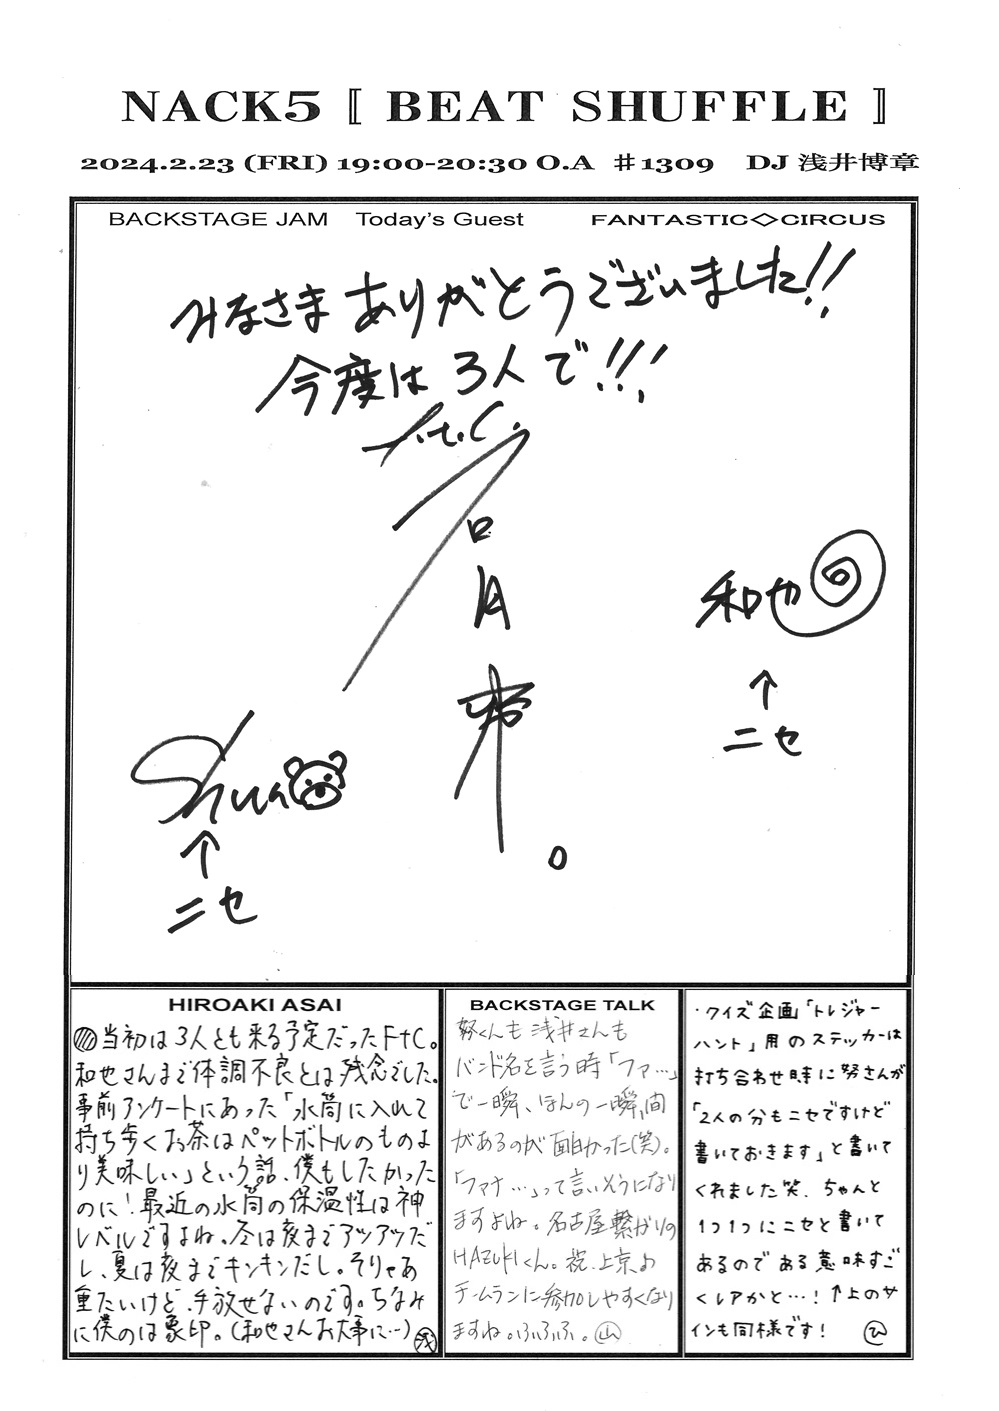 NACK5 〚 BEAT SHUFFLE 〛
2024.2.23 (FRI) 19:00-20:30 O.A ♯1309 DJ 浅井博章
BACKSTAGE JAM Today's Guest FANTASTIC◇CIRCUS
みなさま ありがとうございました!!
今度は 3人で!!!
f.t.C.
和也
↑
ニセ
Shun
↑
ニセ
HIROAKI ASAI
当初は3人とも来る予定だったFtC。
和也さんまで体調不良とは残念でした。
事前アンケートにあった「水筒に入れて
持ち歩くお茶はペットボトルのものよ
り美味しい」という話、僕もしたかった
のに!最近の水筒の保温性は神
レベルですよね。冬は夜までアツアツだ
し、夏は夜までキンキンだし。そりゃあ
重たいけど、手放せないのです。ちなみ
に僕のは象印。(和也さんお大事に…) 浅
BACKSTAGE TALK
努くんも浅井さんも
バンド名を言う時「ファ…」
で一瞬、ほんの一瞬、間
があるのが面白かった(笑)。
「ファナ…」って言いそうになり
ますよね。名古屋繋がりの
HAZUKIくん。祝.上京お
チームランに参加しやすくなり
ますね。ふふふ。山
・クイズ企画「トレジャー
ハント」用のステッカーは
打ち合わせ時に努さんが
「2人の分もニセですけど
書いておきます」と書いて
くれました笑、ちゃんと
1つ1つにニセと書いて
あるのである意味すご
くレアかと…!↑上のサ
インも同様です! ひ